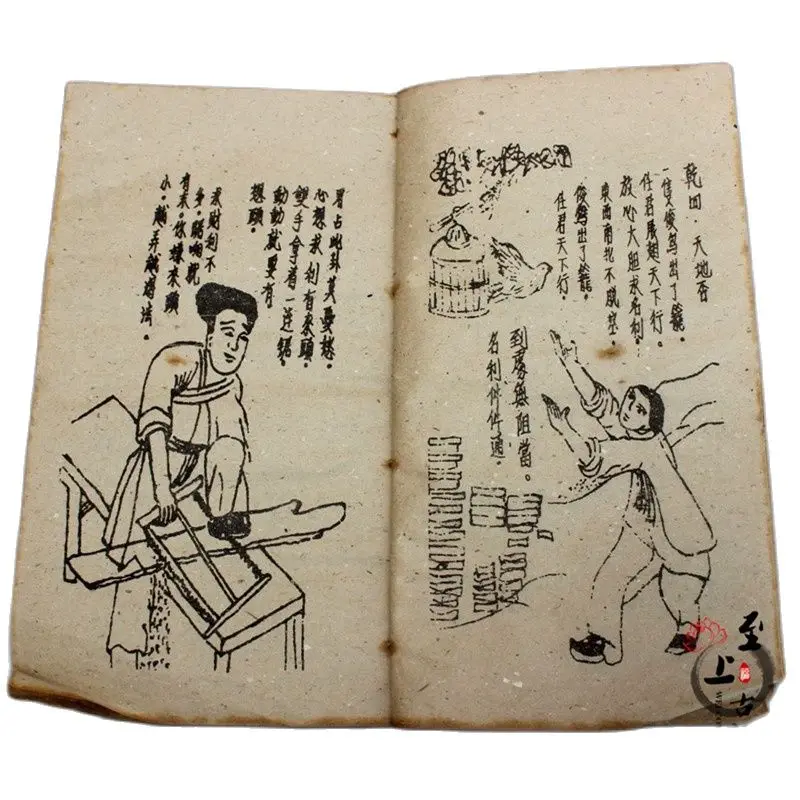 乾四。天地否
一隻俊鳥出了籠。
任君展翅天下行。
放心大胆求名利。
東西南北不塞。
俊鳥出了籠。
任君天下行。
到處無阻當。
名利件件通。
占此卦莫憂愁。
心想求利有來頭。
雙手拿着一連鋸。
動動就要有
想頭。
求財利不
多。鋸响就
有末。你嫌末頭
小。越弄越法。
至
上
古